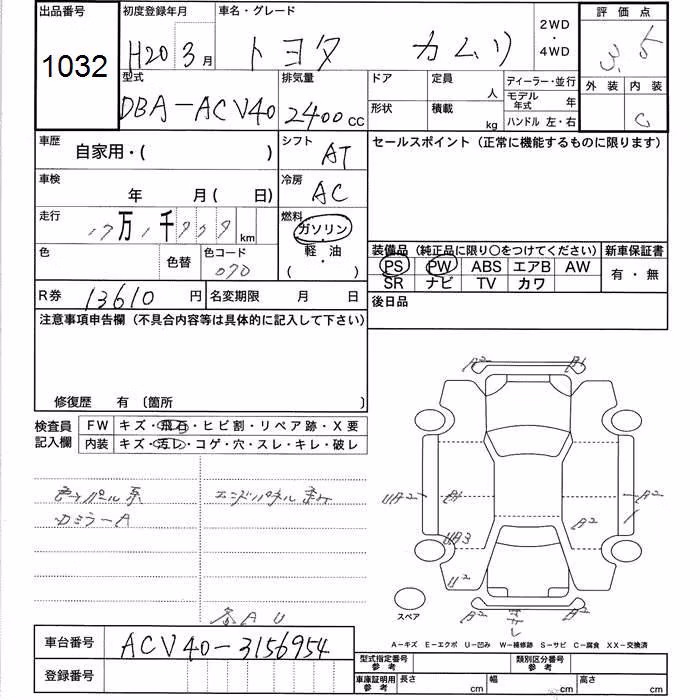 出品番号
1032
初度登録年月
H20 3月
車名・グレード
トヨタ カムリ
2WD
・
4WD
評価点
3.5
外装 内装
C
型式
DBA-ACV40
排気量
2400cc
ドア
形状
定員
人
積載
kg
ディーラー・並行
モデル
年式
年
ハンドル 左・右
車歴
自家用・( )
シフト
AT
セールスポイント (正常に機能するものに限ります)
車検
年 月( 日)
冷房
AC
走行
17万1千777km
燃料
ガソリン
・
軽・油
( )
色
色替
色コード
070
装備品 (純正品に限り○をつけてください)
新車保証書
PS PW ABS エアB AW
SR ナビ TV カワ
有・無
R券
13610円
名変期限 月 日
後日品
注意事項申告欄 (不具合内容等は具体的に記入して下さい)
修復歴 有 〔箇所 〕
検査員
記入欄
FW キズ・飛石・ヒビ割・リペア跡・X要
内装 キズ・汚レ・コゲ・穴・スレ・キレ・破レ
A2
A1
UA2
B1
A2
B2
UB3
U2
ミラーA
各AU
スペア
A-キズ E-エクボ U-凹み W-補修跡 S-サビ C-腐食 XX-交換済
車台番号
ACV40-3156954
登録番号
型式指定番号
参考
類別区分番号
参考
車庫証明用
参考
長さ cm
幅 cm
高さ cm